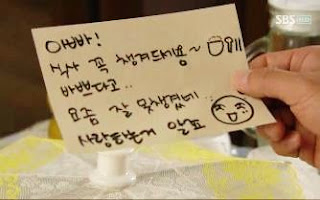 SBS
식사 꼭 챙겨드세용~
바쁘다고..
요즘 잘 못챙겼네..
사랑하는거 알죠